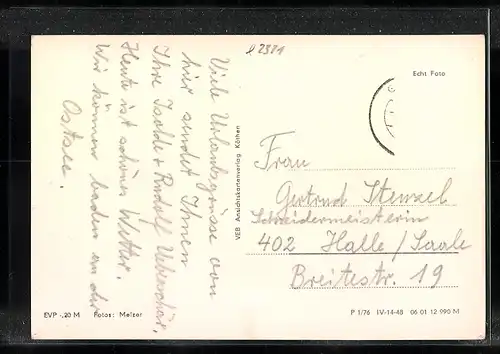 ll 2381
Echt Foto
Viele Urlaubsgrüsse von
hier sendet Ihnen
Ihre Isolde + Rudolf Ueberschär,
Heute ist schönes Wetter.
Wir können baden an der
Ostsee.
VEB Ansichtskartenverlag Köthen
Frau
Gertrud Stenzel
Schneidermeisterin
402 Halle/Saale
Breitestr. 19
EVP -,20 M Fotos: Melzer
P 1/76 IV-14-48 06 01 12 990 M